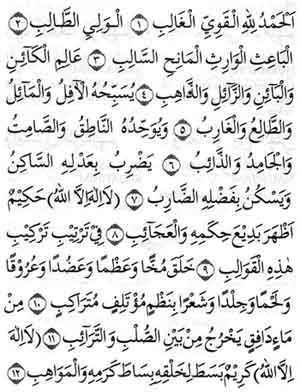 اَلْحَمْدُ لِلّٰهِ الْقَوِيِّ الْغَالِبِ ۝١ اَلْوَلِيِّ الطَّالِبِ ۝٢
الْبَاعِثِ الْوَارِثِ الْمَانِحِ السَّالِبِ ۝٣ عَالِمِ الْكَآئِنِ
وَالْبَآئِنِ وَالزَّآئِلِ وَالذَّاهِبِ ۝٤ يُسَبِّحُهُ الْآفِلُ وَالْمَآئِلُ
وَالطَّالِعُ وَالْغَارِبُ ۝٥ وَيُوَحِّدُهُ النَّاطِقُ وَالصَّامِتُ
وَالْجَامِدُ وَالذَّائِبُ ۝٦ يَضْرِبُ بِعَدْلِهِ السَّاكِنُ
وَيَسْكُنُ بِفَضْلِهِ الضَّارِبُ ۝٧ (لَا اِلٰهَ اِلَّا اللهُ) حَكِيْمٌ
اَظْهَرَ بَدِيْعَ حِكَمِهِ وَالْعَجَآئِبِ ۝٨ فِيْ تَرْتِيْبِ تَرْكِيْبِ
هٰذِهِ الْقَوَالِبِ ۝٩ خَلَقَ مُخًّا وَعَظْمًا وَعَضُدًا وَعُرُوْقًا
وَلَحْمًا وَجِلْدًا وَشَعْرًا بِنَظْمٍ مُؤْتَلِفٍ مُتَرَاكِبٍ ۝١٠ مِنْ
مَآءٍ دَافِقٍ يَخْرُجُ مِنْ بَيْنِ الصُّلْبِ وَالتَّرَآئِبِ ۝١١ (لَا اِلٰهَ
اِلَّا اللهُ) كَرِيْمٌ بَسَطَ لِخَلْقِهِ بِسَاطَ كَرَمِهِ وَالْمَوَاهِبِ ۝١٢